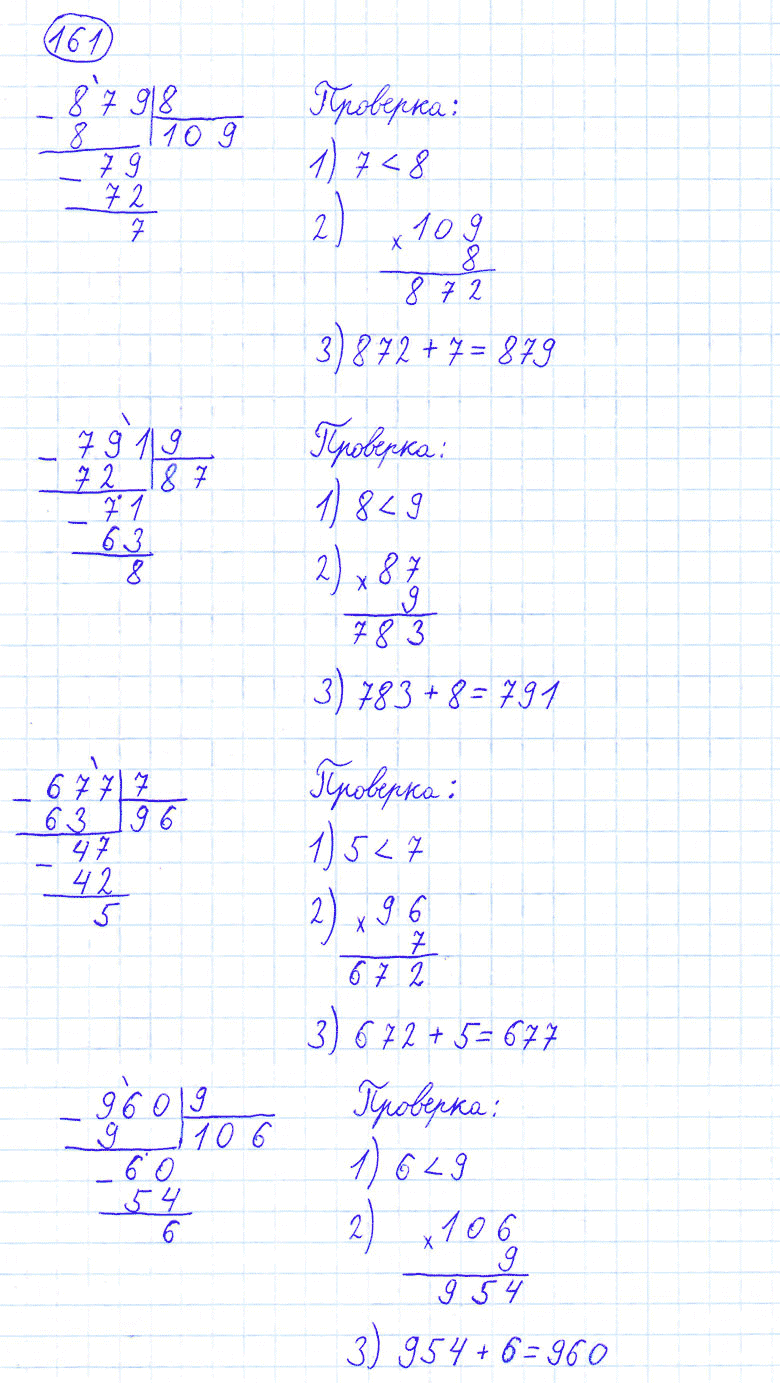 161
- 8 7 9 | 8
8 | 1 0 9
- 7 9
7 2
7
Проверка:
1) 7 < 8
2) x 1 0 9
8
8 7 2
3) 872 + 7 = 879
- 7 9 1 | 9
7 2 | 8 7
- 7 1
6 3
8
Проверка:
1) 8 < 9
2) x 8 7
9
7 8 3
3) 783 + 8 = 791
- 6 7 7 | 7
6 3 | 9 6
- 4 7
4 2
5
Проверка:
1) 5 < 7
2) x 9 6
7
6 7 2
3) 672 + 5 = 677
- 9 6 0 | 9
9 | 1 0 6
- 6 0
5 4
6
Проверка:
1) 6 < 9
2) x 1 0 6
9
9 5 4
3) 954 + 6 = 960